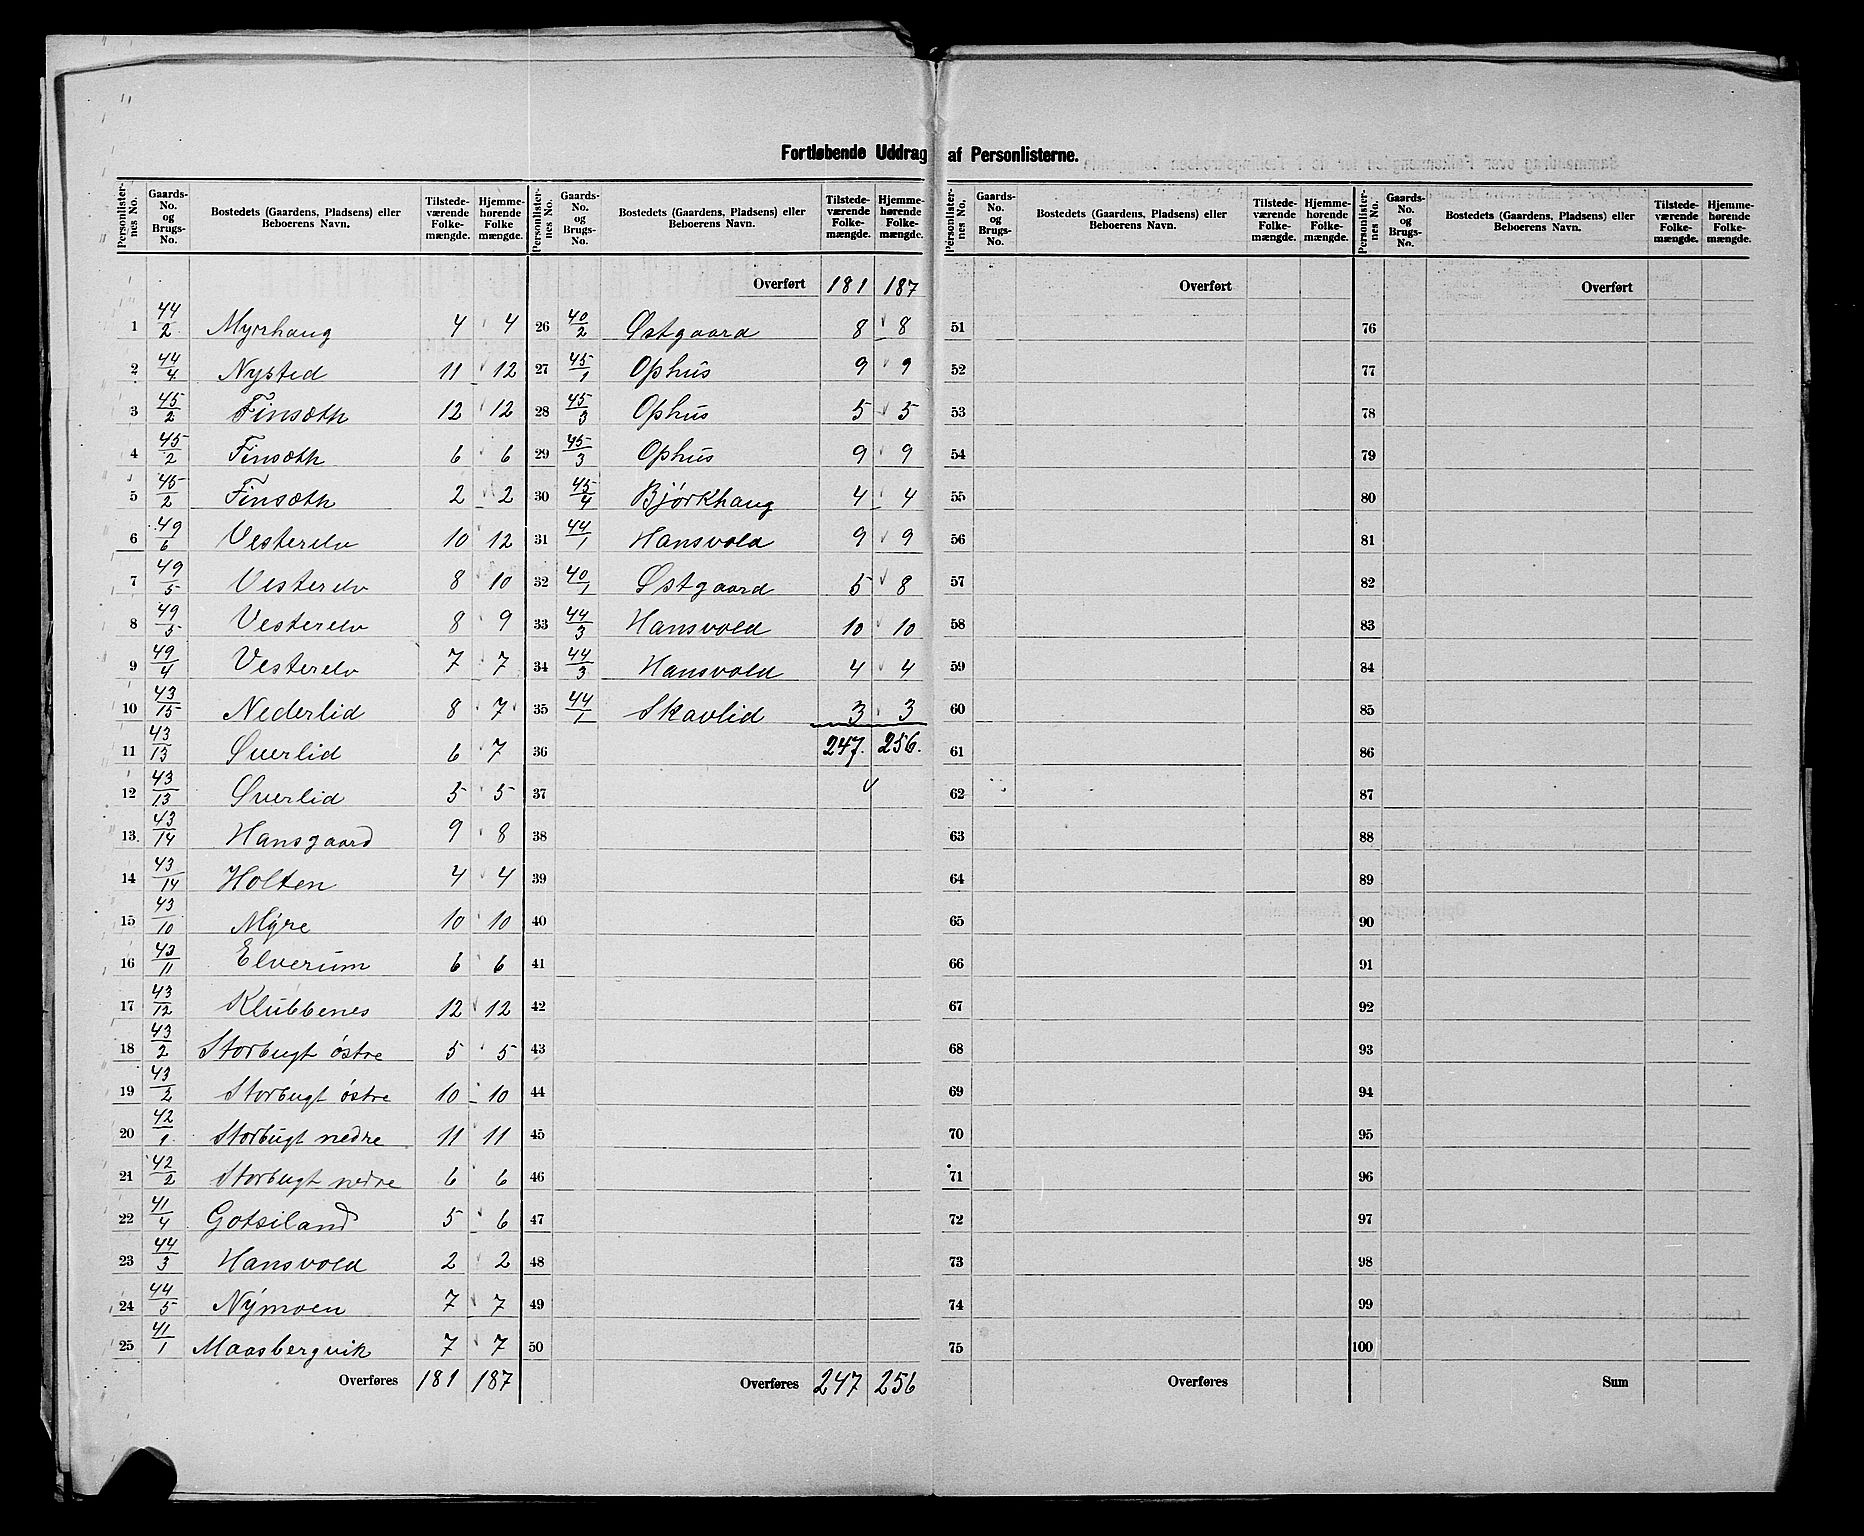 Fortløbende Uddrag af Personlisterne.
Personlisternes No. | Gaards-No. og Brugs-No. | Bostedets (Gaardens, Pladsens) eller Beboerens Navn. | Tilstedeværende Folkemængde. | Hjemmehørende Folkemængde.
1 44/2 Myrhaug 4 4
2 44/4 Nysted 11 12
3 45/2 Finsæth 12 12
4 45/2 Finsæth 6 6
5 45/2 Finsæth 2 2
6 49/6 Vesterelv 10 12
7 49/5 Vesterelv 8 10
8 49/5 Vesterelv 8 9
9 49/4 Vesterelv 7 7
10 43/15 Nederlid 8 7
11 43/13 Sverlid 6 7
12 43/13 Sverlid 5 5
13 43/14 Hansgaard 9 8
14 43/14 Holten 4 4
15 43/10 Myre 10 10
16 43/11 Elverum 6 6
17 43/12 Klubbenes 12 12
18 43/2 Storbugt østre 5 5
19 43/2 Storbugt østre 10 10
20 42/1 Storbugt nedre 11 11
21 42/2 Storbugt nedre 6 6
22 41/4 Gotsiland 5 6
23 44/3 Hansvold 2 2
24 44/5 Nymoen 7 7
25 41/1 Maasbergvik 7 7
Overføres 181 187
Personlisternes No. | Gaards-No. og Brugs-No. | Bostedets (Gaardens, Pladsens) eller Beboerens Navn. | Tilstedeværende Folkemængde. | Hjemmehørende Folkemængde.
Overført 181 187
26 40/2 Østgaard 8 8
27 45/1 Ophus 9 9
28 45/3 Ophus 5 5
29 45/3 Ophus 9 9
30 45/4 Bjørkhaug 4 4
31 44/1 Hansvold 9 9
32 40/1 Østgaard 5 8
33 44/3 Hansvold 10 10
34 44/3 Hansvold 4 4
35 44/1 Skavlid 3 3
36 247. 256.
37
38
39
40
41
42
43
44
45
46
47
48
49
50
Overføres 247 256
Personlisternes No. | Gaards-No. og Brugs-No. | Bostedets (Gaardens, Pladsens) eller Beboerens Navn. | Tilstedeværende Folkemængde. | Hjemmehørende Folkemængde.
Overført
51
52
53
54
55
56
57
58
59
60
61
62
63
64
65
66
67
68
69
70
71
72
73
74
75
Overføres
Personlisternes No. | Gaards-No. og Brugs-No. | Bostedets (Gaardens, Pladsens) eller Beboerens Navn. | Tilstedeværende Folkemængde. | Hjemmehørende Folkemængde.
Overført
76
77
78
79
80
81
82
83
84
85
86
87
88
89
90
91
92
93
94
95
96
97
98
99
100
Sum